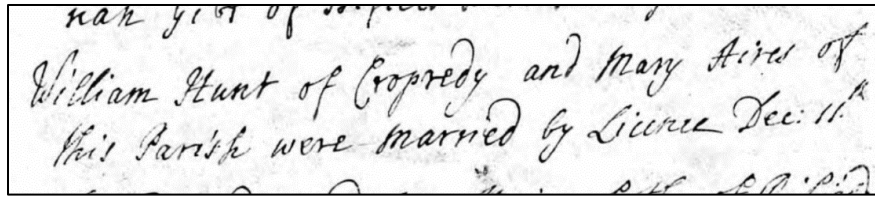 William Hunt of Cropredy and Mary Aires of
this Parish were married by Licence Dec: 11th